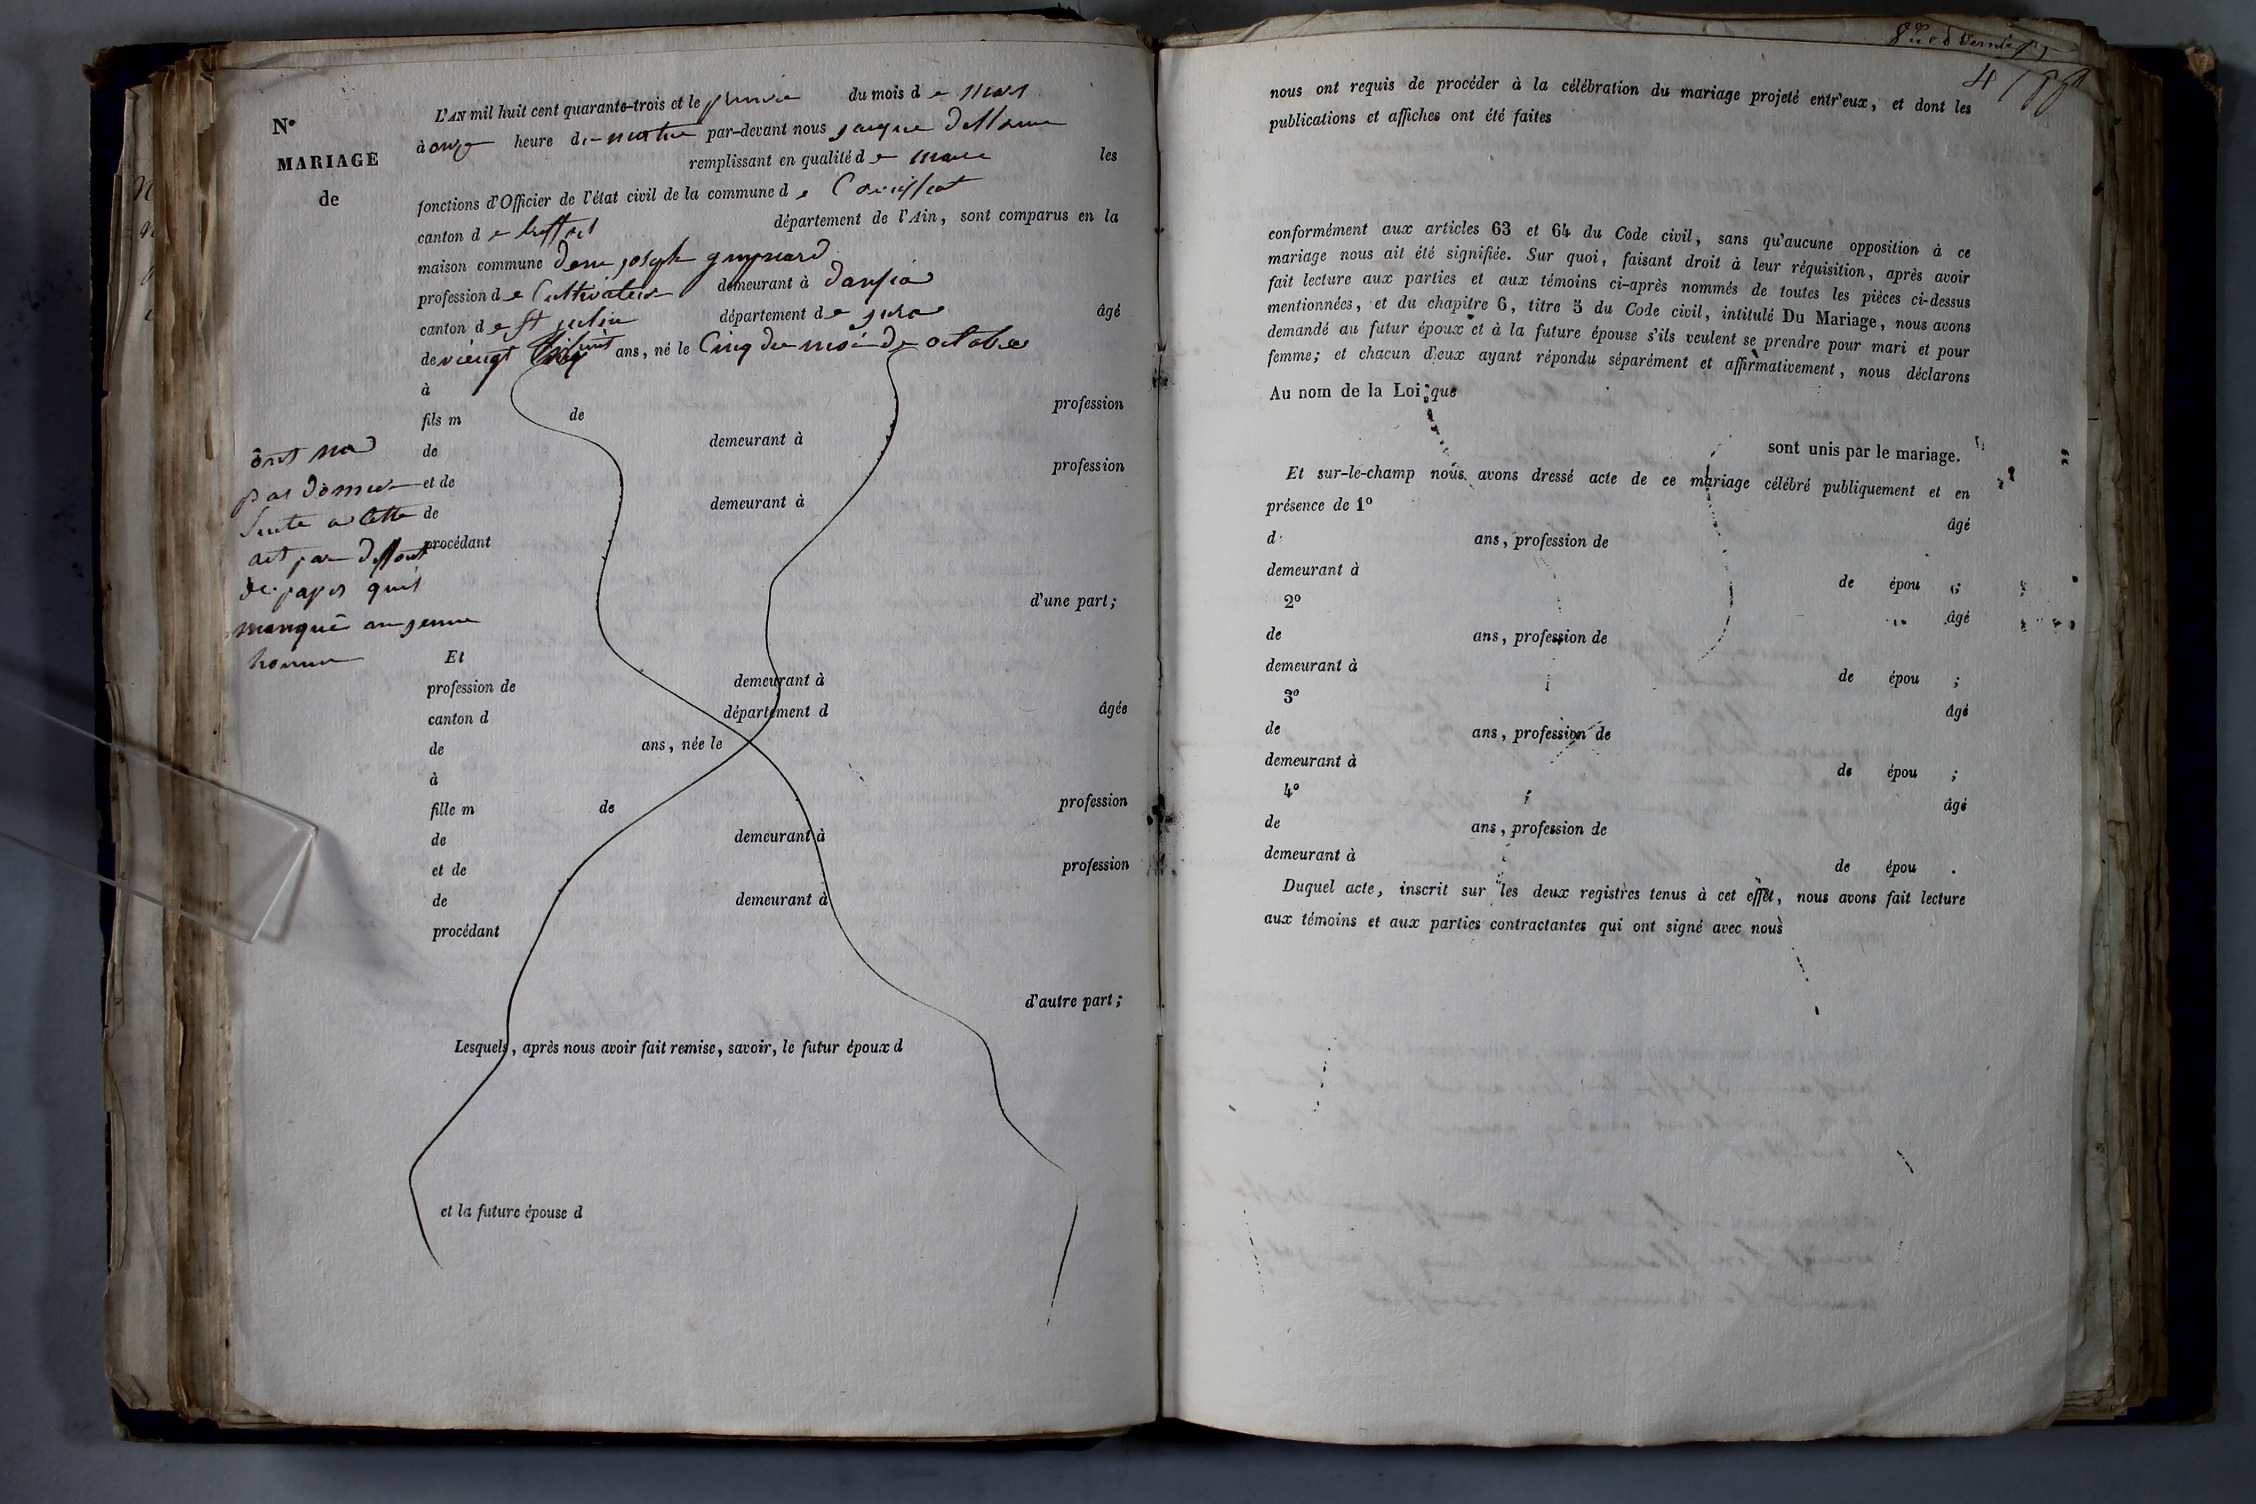 N°
MARIAGE
de
L'AN mil huit cent quarante-trois et le premie du mois d e mars
à onze heure de matin par-devant nous jacque
remplissant en qualité d e maire les
fonctions d'Officier de l'état civil de la commune d e
canton d e département de l'Ain, sont comparus en la
maison commune joseph
profession d e Cultivateur demeurant à dansia
canton d e st julin département de jura âgé
de vieugt huit ans, né le Cinq du mois de octobre
à
fils m de profession
de demeurant à
et de profession
de demeurant à
procédant
d'une part;
ont na
pas donner
suite a cette
act par deffaut
de papis quil
manquè au jeune
homme
Et
profession de demeurant à
canton d département d âgée
de ans, née le
à
fille m de profession
de demeurant à
et de profession
de demeurant à
procédant
d'autre part;
Lesquels, après nous avoir fait remise, savoir, le futur époux d
et la future épouse d
4
nous ont requis de procéder à la célébration du mariage projeté entr'eux, et dont les
publications et affiches ont été faites
conformément aux articles 63 et 64 du Code civil, sans qu'aucune opposition à ce
mariage nous ait été signifiée. Sur quoi, faisant droit à leur réquisition, après avoir
fait lecture aux parties et aux témoins ci-après nommés de toutes les pièces ci-dessus
mentionnées, et du chapitre 6, titre 5 du Code civil, intitulé Du Mariage, nous avons
demandé au futur époux et à la future épouse s'ils veulent se prendre pour mari et pour
femme; et chacun d'eux ayant répondu séparément et affirmativement, nous déclarons
Au nom de la Loi, que
sont unis par le mariage.
Et sur-le-champ nous avons dressé acte de ce mariage célébré publiquement et en
présence de 1° âgé
d ans, profession de
demeurant à de épou ;
2° âgé
de ans, profession de
demeurant à de épou ;
3° âgé
de ans, profession de
demeurant à de épou ;
4° âgé
de ans, profession de
demeurant à de épou .
Duquel acte, inscrit sur les deux registres tenus à cet effet, nous avons fait lecture
aux témoins et aux parties contractantes qui ont signé avec nous